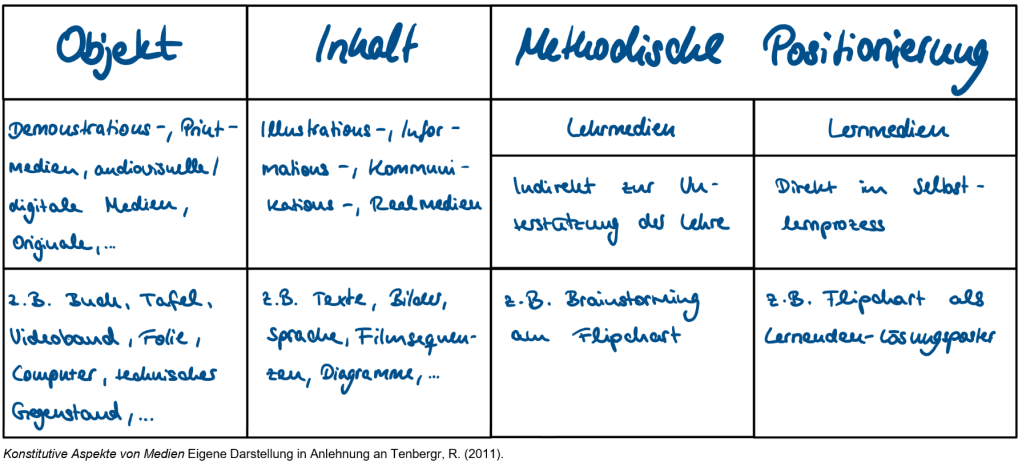 Objekt
Inhalt
Methodische Positionierung
Demonstrations-, Print-
medien, audiovisuelle/
digitale Medien,
Originale,...
Illustrations-, Infor-
mations-, Kommuni-
kations-, Realmedien
Lehrmedien
Indirekt zur Un-
terstützung der Lehre
Lernmedien
Direkt im Selbst-
lernprozess
z.B. Buch, Tafel,
Videoband, Folie,
Computer, technischer
Gegenstand,...
z.B. Texte, Bilder,
Sprache, Filmsequen-
zen, Diagramme,...
z.B. Brainstorming
am Flipchart
z.B. Flipchart als
Lernenden-Lösungsposter
Konstitutive Aspekte von Medien Eigene Darstellung in Anlehnung an Tenbergr, R. (2011).